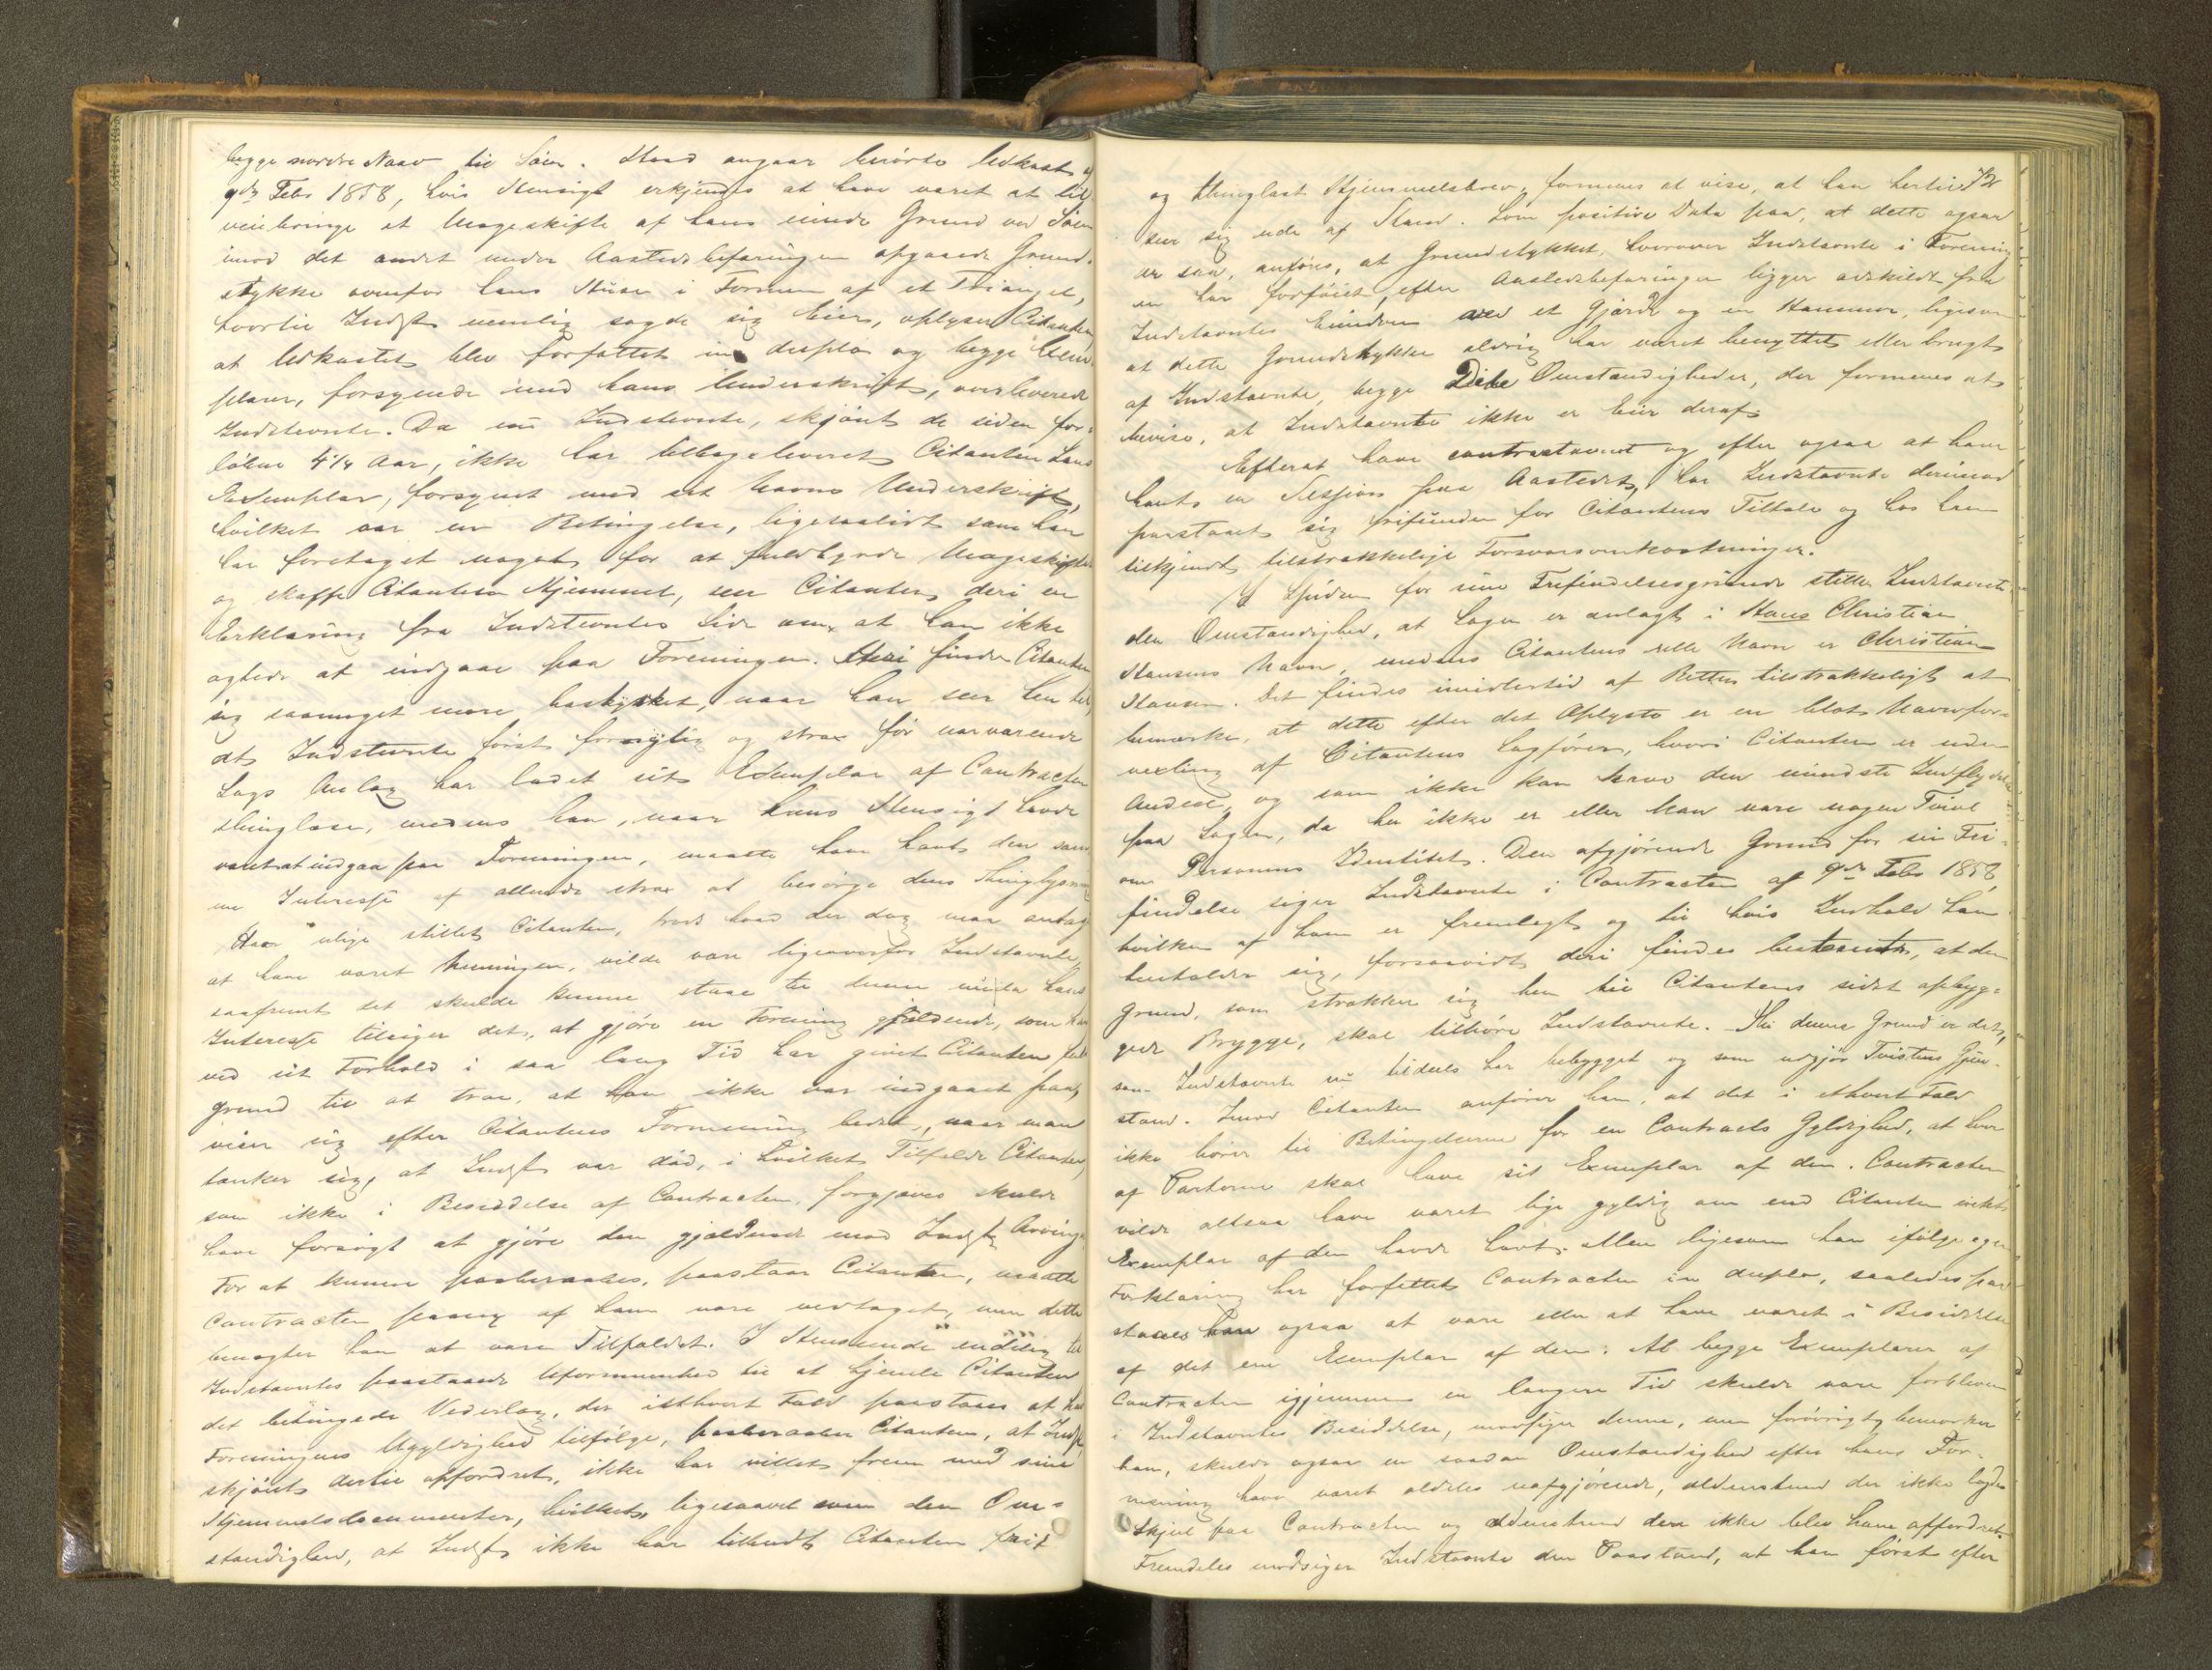 bygge nordre Naav til Søen. Hvad angaar berørte Udkast af
9de Febr 1858, hvis Hensigt erkjendes at have været at til-
veiebringe et Mageskifte af hans øiede Grund ved Søen
imod det andet under Aastedsbefaringen opgaaede Grund-
stykke ovenfor hans Stuer i Formen af et Triangel,
hvortil Indst nemlig sagde sig Eier, oplyser Citanten
at Udkastet blev forfattet in duplo og begge Exem-
plarer, forsynede med hans Underskrift, overleverede
Indstevnte. Da nu Indstevnte, skjønt de siden for-
løbne 4¼ Aar, ikke har tilbageleveret Citanten hans
Exemplar, forsynet med sit Navns Underskrift,
hvilket var en Betingelse, ligesaalidt som han
har foretaget noget for at fuldbyrde Mageskiftet
og skaffe Citanten Hjemmel, ser Citanten deri en
Erklæring fra Indstevntes Side om, at han ikke
agtede at indgaae paa Foreningen. Heri finder Citanten
sig saameget mere bestyrket, naar han seer hen til,
at Indstevnte først forsigtig og strax før nærværende
Sags Anlæg har ladet sit Exemplar af Contracten
thinglæse, medens han, naar hans Hensigt havde
været at indgaa paa Foreningen, maatte have havt den sam-
me Interesse af allerede strax at besørge dens Thinglysning
Hvor ulige stillet Citanten, trods hvad der dog maa antag
at have været Meningen, vilde være ligeoverfor Indstævnte,
saafremt det skulde kunne staae til denne nu da hans
Interesse tilsiger det, at gjøre en Forening gjældende, som han
ved sit Forhold i saa lang Tid har givet Citanten fuld
grund til at troe, at han ikke var indgaaet paa,
viser sig efter Citantens Formening bedst, naar man
tænker sig, at Indst var død, i hvilket Tilfælde Citanten,
som ikke i Besiddelse af Contracten, forgjæves skulde
have forsøgt at gjøre den gjældende mod Indst Arvinger
For at kunne paaberaabes, paastaar Citanten, maatte
Contracten paany af ham være vedtaget, men dette
benægter han at være Tilfældet. I Henseende endelig til
Indstævntes paastaaede Uformuenhed til at hjemle Citanten
det betingede Vederlag, der isthvert Fald paastaaes at have
Foreningens Ugyldighed tilfølge, paaberaaber Citanten, at Indst
skjønt dertil opfordret, ikke har villet frem med sine
Hjemmelsdocumenter, hvilket, ligesaavel som den Om-
stændighed, at Indst ikke har tilbudt Citanten frit
og thinglæst Hjemmelsbrev, formenes at vise, at han hertil
seer sig ude af Stand. Som positive Data paa, at dette ogsaa
er saa, anføres, at Grundstykket, hvorover Indstævnte i Forening
en har forføiet, efter Aastedsbefaringen ligger adskildt fra
Indstævntes Eiendom ved et Gjærde og en Hammer, ligesom
at dette Grundstykke aldrig har været benyttet eller brugt
af Indstævnte, begge Dele Omstændigheder, der formenes at
bevise, at Indstævnte ikke er Eier deraf.
Efterat have contrastevnet og efter ogsaa at have
havt en Session paa Aastedet, har Indstævnte derimod
paastaaet sig frifunden for Citantens Tiltale og hos ham
tilkjendt tilstrækkelige Forsvarsomkostninger.
I Spidsen for sine Frifindelsesgrunde stiller Indstævnte
den Omstændighed, at Sagen er anlagt i Hans Christian
Hansens Navn, medens Citantens rette Navn er Christian
Hansen. Det findes imidlertid af Retten tilstrækkeligt at
bemærke, at dette efter det Oplyste er en blot Navnefor-
vexling af Citantens Sagfører, hvori Citanten er uden
Andeel, og som ikke kan have den mindste Indflydelse
paa Sagen, da her ikke er eller kan være nogen Tvivl
om Personens Identitet. Den afgjørende Grund for sin Fri-
findelse siger Indstævnte i Contracten af 9de Febr 1858
hvilken af ham er fremlagt og til hvis Indhold han
henholder sig, forsaavidt deri findes bestemt, at den
Grund, som strækker sig hen til Citantens sidst opbyg-
gede Brygge, skal tilhøre Indstævnte. Thi denne Grund er det,
som Indstævnte nu tildeels har bebygget og som udgjør Tvistens Gjen-
stand. Imod Citanten anfører han, at det i ethvert Fald
ikke hører til Betingelserne for en Contracts Gyldighed, at hver
af Parterne skal have sit Exemplar af den. Contracten
vilde altsaa have været lige gyldig om end Citanten intet
Exemplar af den havde havt. Men ligesom han ifølge egen
Forklaring har forfattet Contracten in duplo, saaledes paa
staaes han ogsaa at være eller at have været i Besiddelse
af det ene Exemplar af den. At begge Exemplarer af
Contracten igjennem en længere Tid skulde være forbleven
i Indstævntes Besiddelse, modsiger denne, men forøvrigt, bemærker
han, skulde ogsaa en saadan Omstændighed efter hans For-
mening have været aldeles uafgjørende, aldenstund der ikke lagdes
Skjul paa Contracten og aldenstund den ikke blev ham affordret.
Fremdeles modsiger Indstævnte den Paastand, at han først efter